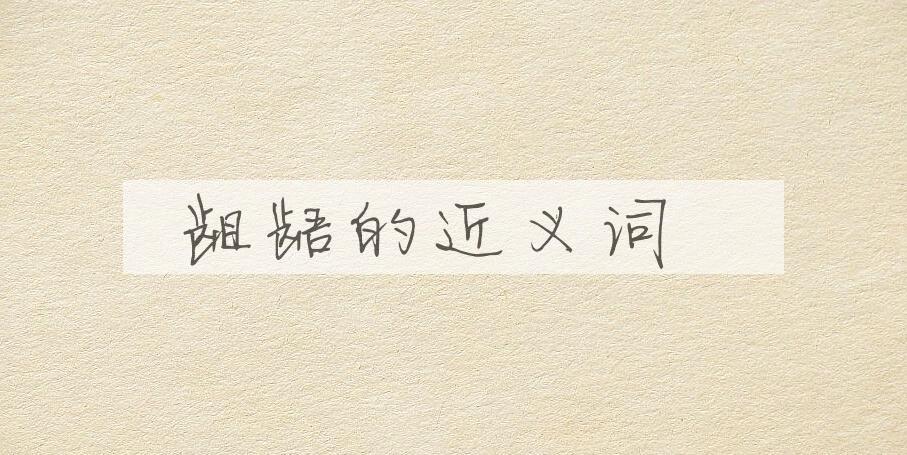 龃龉的近义词